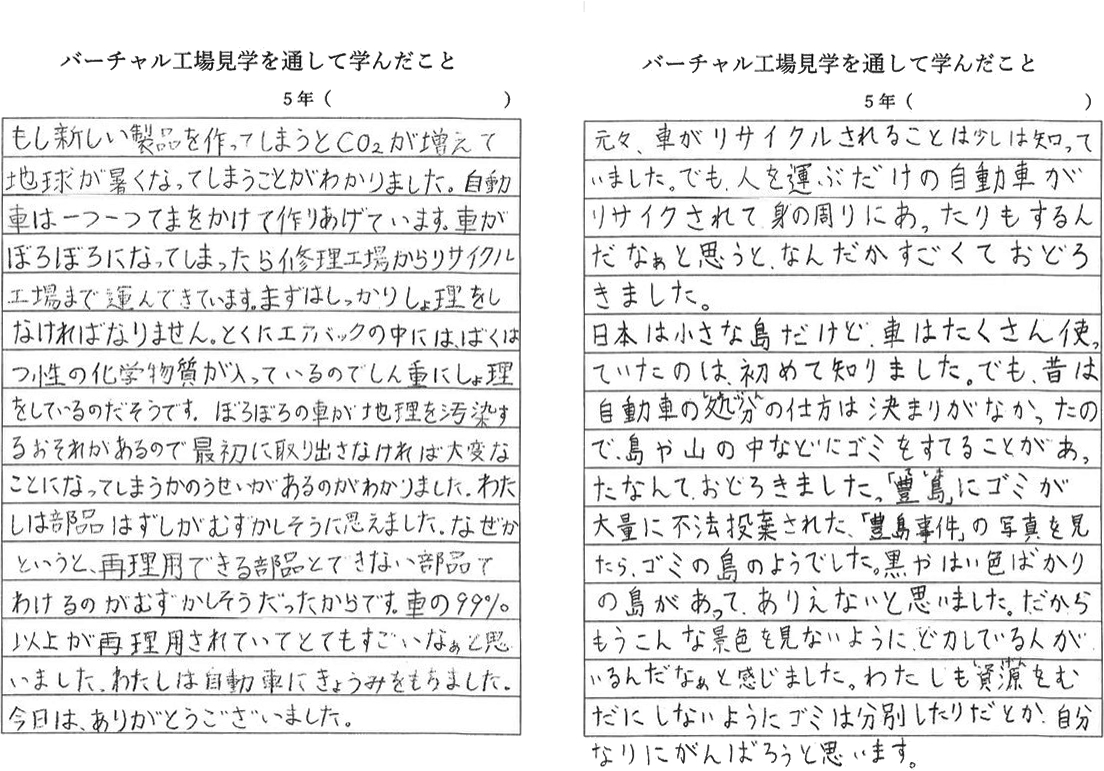 バーチャル工場見学を通して学んだこと
5年（　　　　　　　　　）
もし新しい製品を作ってしまうとCO₂が増えて
地球が暑くなってしまうことがわかりました。自動
車は一つ一つてまをかけて作りあげています。車が
ぼろぼろになってしまったら修理工場からリサイクル
工場まで運んできています。まずはしっかりしょ理をし
なければなりません。とくにエアバックの中には、ばくは
つ性の化学物質が入っているのでしん重にしょ理
をしているのだそうです。ぼろぼろの車が地理を汚染す
るおそれがあるので最初に取り出さなければ大変な
ことになってしまうかのうせいがあるのがわかりました。わた
しは部品はずしがむずかしそうに思えました。なぜか
というと、再理用できる部品とできない部品で
わけるのがむずかしそうだったからです。車の99%
以上が再理用されていてとてもすごいなぁと思
いました。わたしは自動車にきょうみをもちました。
今日は、ありがとうございました。
バーチャル工場見学を通して学んだこと
5年（　　　　　　　　　）
元々、車がリサイクルされることは少しは知って
いました。でも、人を運ぶだけの自動車が
リサイクされて身の周りにあったりもするん
だなぁと思うと、なんだかすごくておどろ
きました。
日本は小さな島だけど、車はたくさん使っ
ていたのは、初めて知りました。でも、昔は
自動車の処分の仕方は決まりがなかったの
で、島や山の中などにゴミをすてることがあっ
たなんて、おどろきました。「豊島」にゴミが
大量に不法投棄された、「豊島事件」の写真を見
たら、ゴミの島のようでした。黒やはい色ばかり
の島があって、ありえないと思いました。だから
もうこんな景色を見ないように、ど力している人が
いるんだなぁと感じました。わたしも資源をむ
だにしないようにゴミは分別したりだとか、自分
なりにがんばろうと思います。